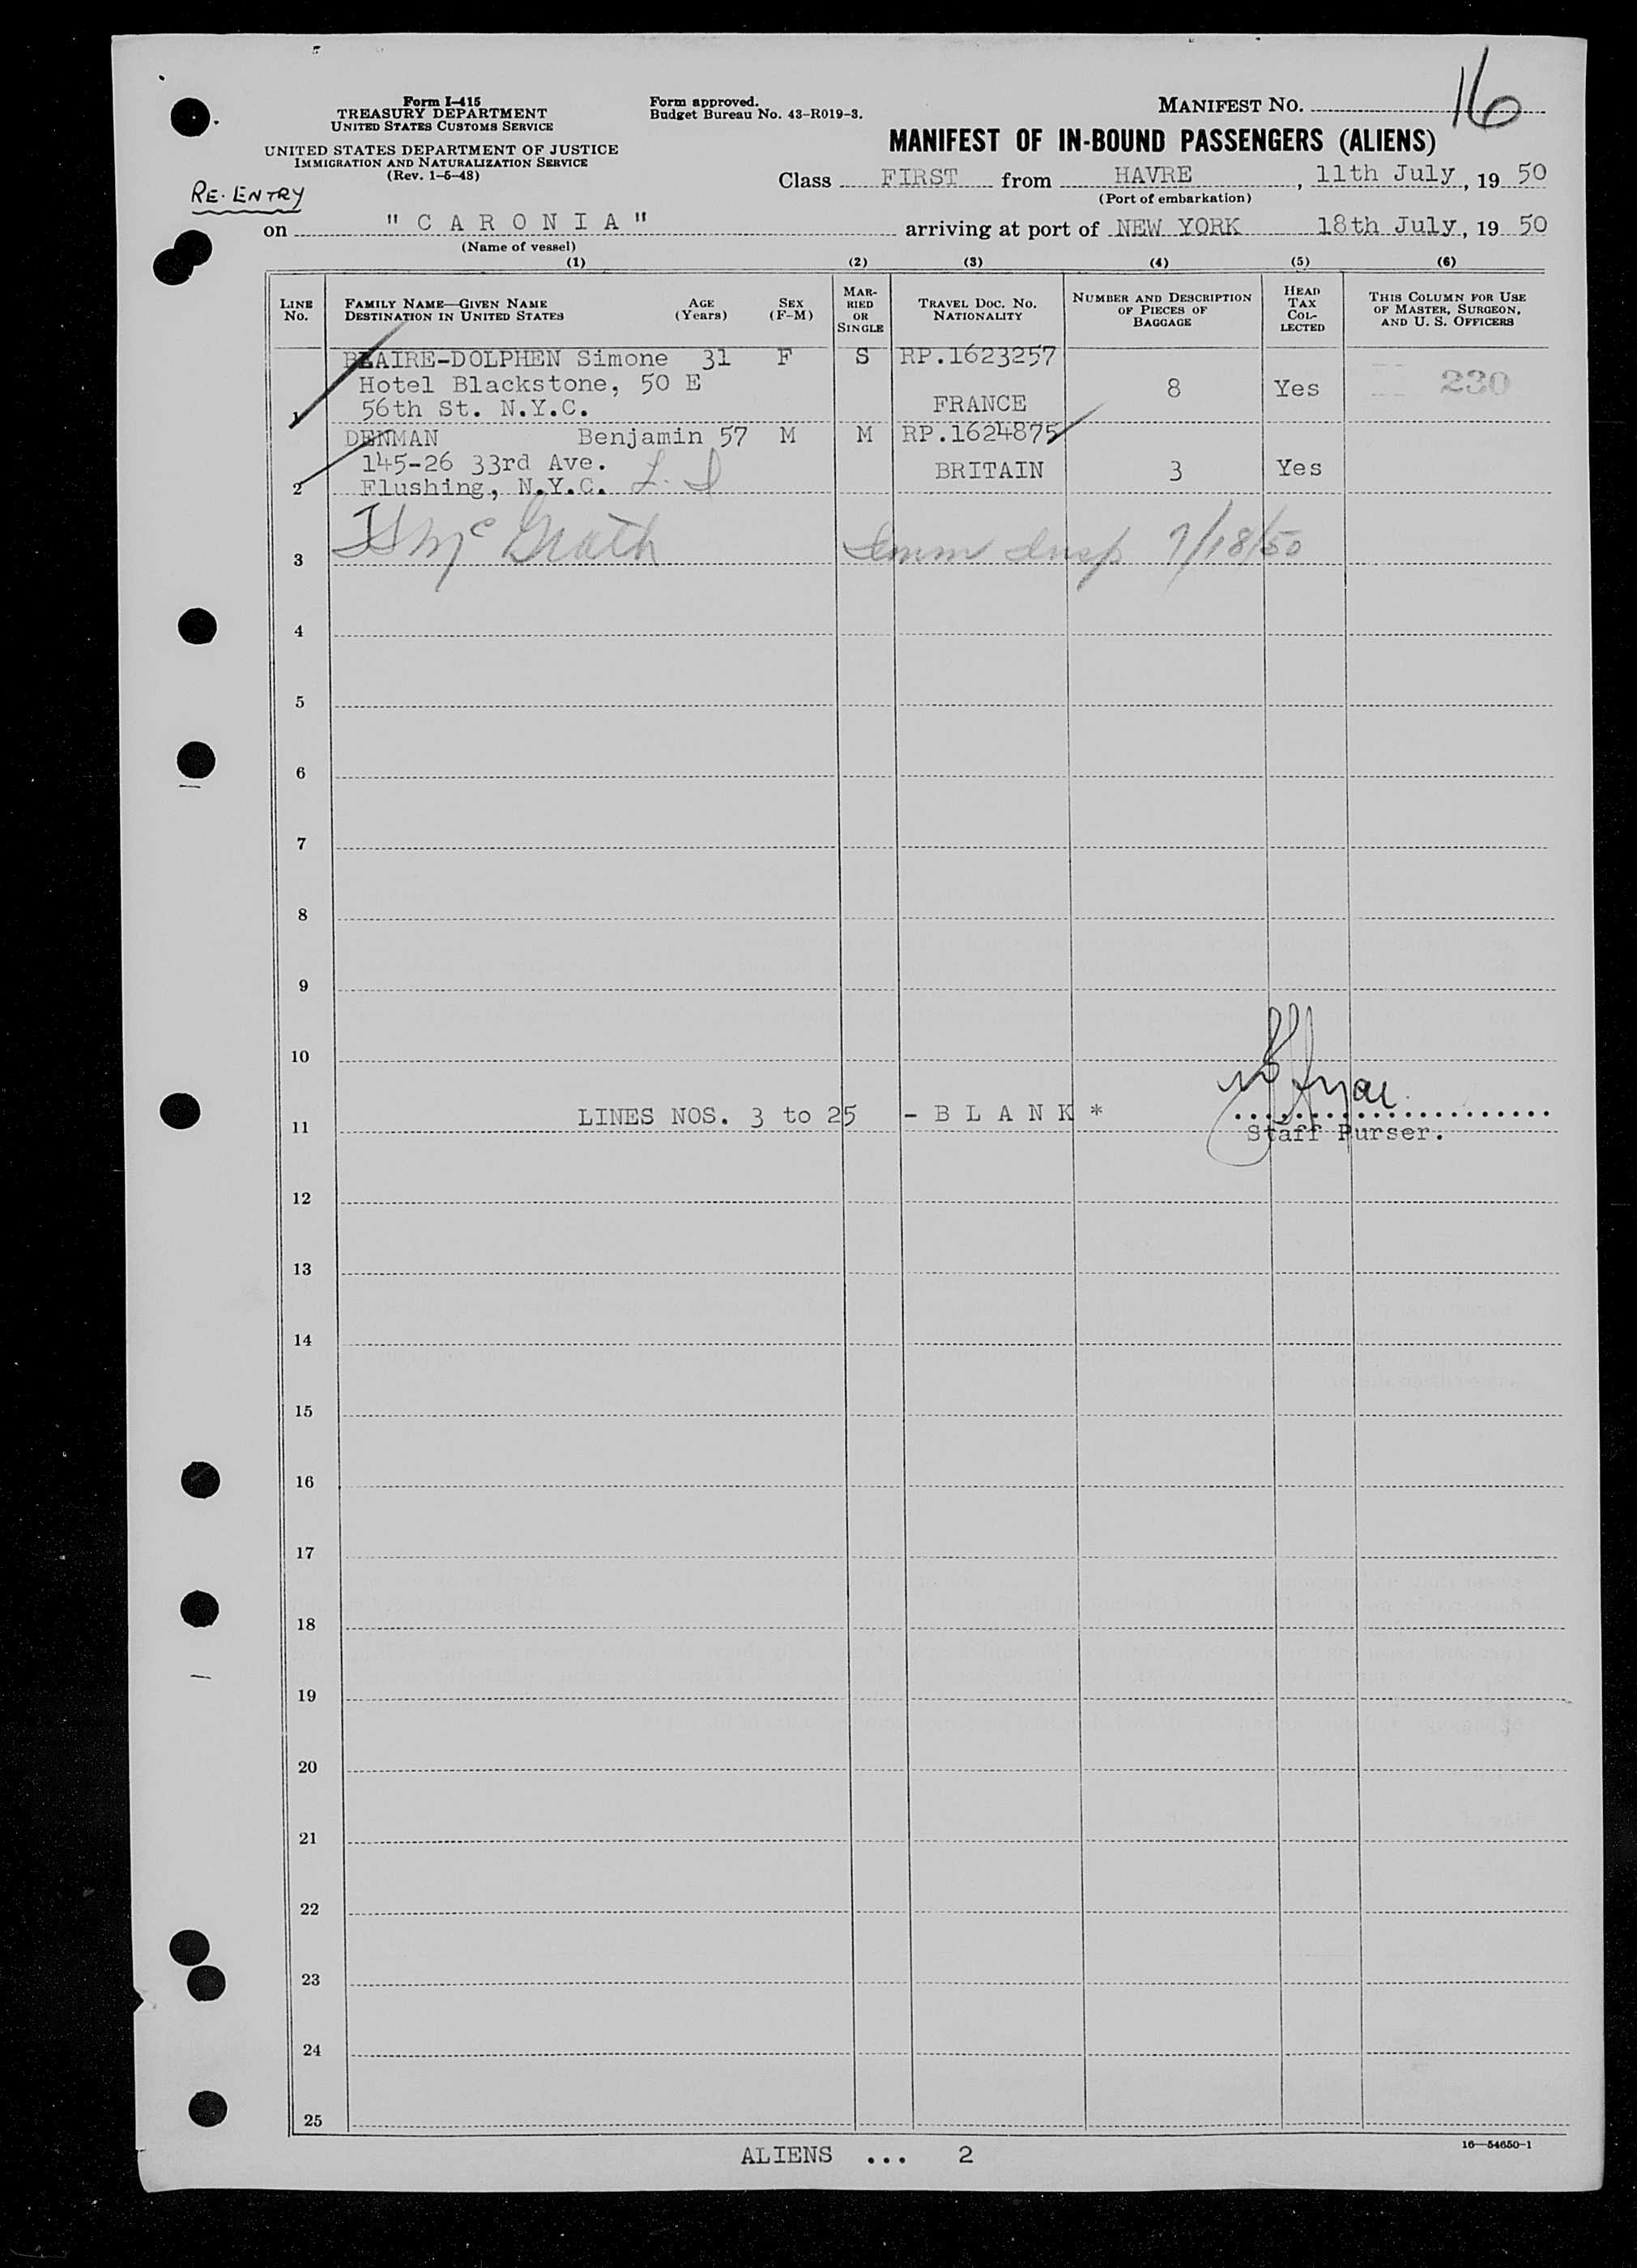 16
Form I-415
TREASURY DEPARTMENT
UNITED STATES CUSTOMS SERVICE
UNITED STATES DEPARTMENT OF JUSTICE
IMMIGRATION AND NATURALIZATION SERVICE
(Rev. 1-5-48)
Form approved.
Budget Bureau No. 43-R019-3.
MANIFEST NO.
MANIFEST OF IN-BOUND PASSENGERS (ALIENS)
Class FIRST from HAVRE, 11th July, 19 50
(Port of embarkation)
RE-ENTRY
on "CARONIA" arriving at port of NEW YORK 18th July, 19 50
(Name of vessel)
(1) (2) (3) (4) (5) (6)
LINE NO.
FAMILY NAME—GIVEN NAME
DESTINATION IN UNITED STATES
AGE (Years)
SEX (F-M)
MARRIED OR SINGLE
TRAVEL DOC. NO.
NATIONALITY
NUMBER AND DESCRIPTION OF PIECES OF BAGGAGE
HEAD TAX COLLECTED
THIS COLUMN FOR USE OF MASTER, SURGEON, AND U. S. OFFICERS
BLAIRE-DOLPHEN Simone 31 F S RP.1623257
Hotel Blackstone, 50 E 8 Yes 230
1 56th St. N.Y.C. FRANCE
DENMAN Benjamin 57 M M RP.1624875
145-26 33rd Ave. BRITAIN 3 Yes
2 Flushing, N.Y.C. L.I
McGrath Imm Insp 7/18/50
3
4
5
6
7
8
9
10
LINES NOS. 3 to 25 - B L A N K *
11
Staff Purser.
12
13
14
15
16
17
18
19
20
21
22
23
24
25
ALIENS ... 2
16—54650-1